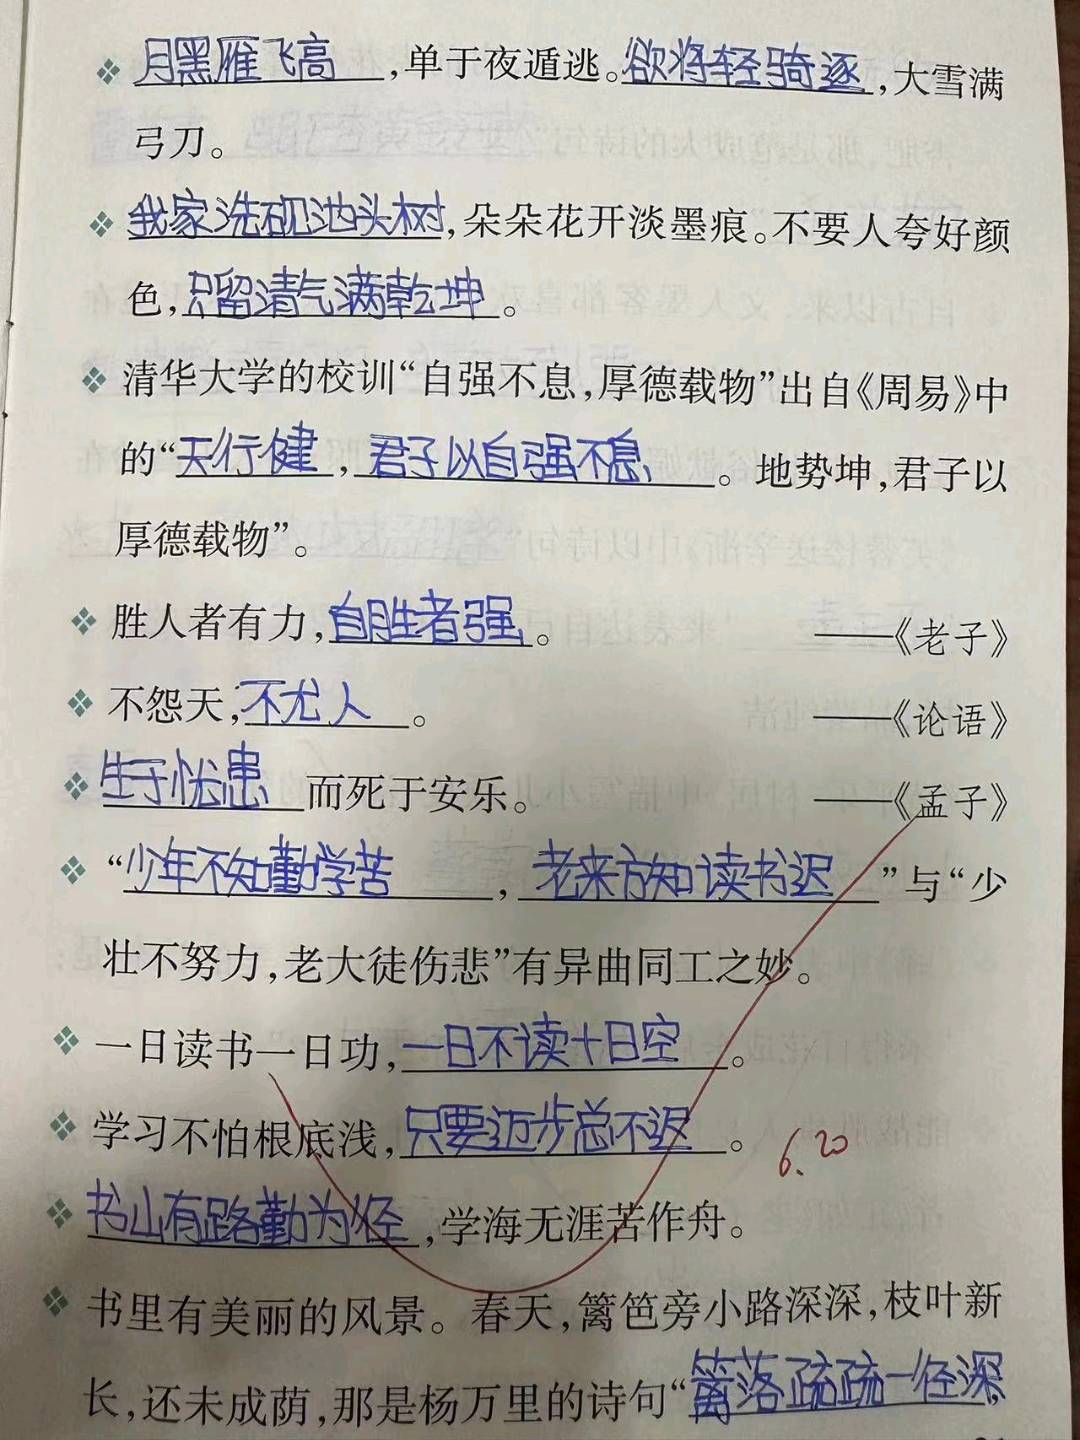 ❖ 月黑雁飞高,单于夜遁逃。欲将轻骑逐,大雪满
弓刀。
❖ 我家洗砚池头树,朵朵花开淡墨痕。不要人夸好颜
色,只留清气满乾坤。
❖ 清华大学的校训“自强不息,厚德载物”出自《周易》中
的“天行健,君子以自强不息。地势坤,君子以
厚德载物”。
❖ 胜人者有力,自胜者强。 ——《老子》
❖ 不怨天,不尤人。 ——《论语》
❖ 生于忧患而死于安乐。 ——《孟子》
❖ “少年不知勤学苦,老来方知读书迟”与“少
壮不努力,老大徒伤悲”有异曲同工之妙。
❖ 一日读书一日功,一日不读十日空。
❖ 学习不怕根底浅,只要迈步总不迟。
6.20
❖ 书山有路勤为径,学海无涯苦作舟。
❖ 书里有美丽的风景。春天,篱笆旁小路深深,枝叶新
长,还未成荫,那是杨万里的诗句“篱落疏疏一径深,